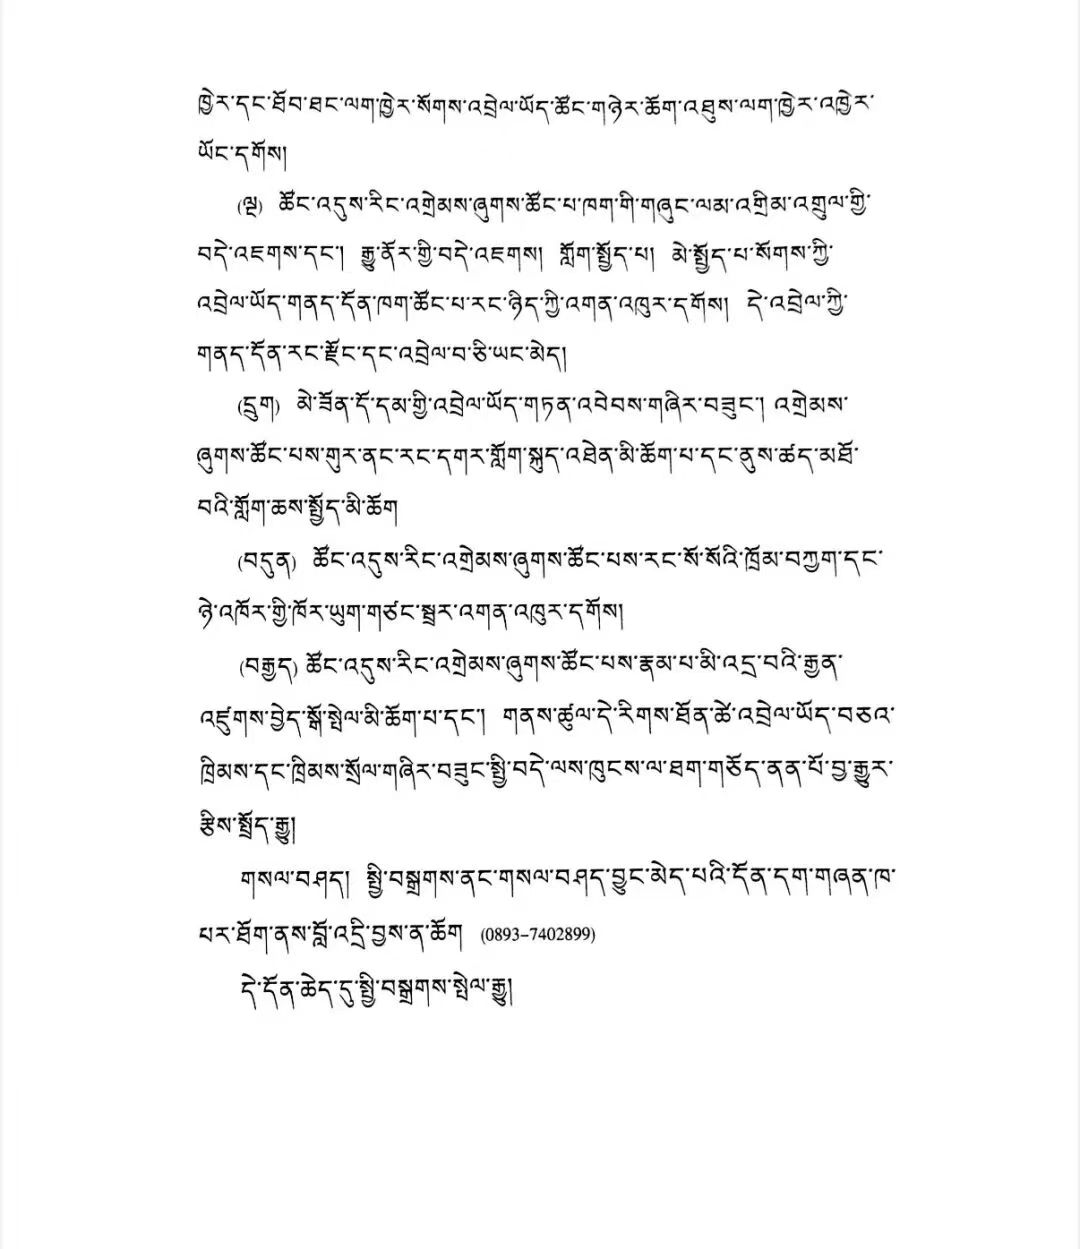 ཁྱེར་དང་ཐོབ་ཐང་ལག་ཁྱེར་སོགས་འབྲེལ་ཡོད་ཚོང་གཉེར་ཆོག་འཐུས་ལག་ཁྱེར་འཁྱེར་
ཡོང་དགོས།
(ལྔ) ཚོང་འདུས་རིང་འགྲེམས་ཞུགས་ཚོང་པ་ཁག་གི་གཞུང་ལམ་འགྲིམ་འགྲུལ་གྱི་
བདེ་འཇགས་དང་། རྒྱུ་ནོར་གྱི་བདེ་འཇགས། གློག་སྤྱོད་པ། མེ་སྤྱོད་པ་སོགས་ཀྱི་
འབྲེལ་ཡོད་གནད་དོན་ཁག་ཚོང་པ་རང་ཉིད་ཀྱི་འགན་འཁུར་དགོས། དེ་འབྲེལ་ཀྱི་
གནད་དོན་རང་རྫོང་དང་འབྲེལ་བ་ཅི་ཡང་མེད།
(དྲུག) མེ་ཟོན་དོ་དམ་གྱི་འབྲེལ་ཡོད་གཏན་འབེབས་གཞིར་བཟུང་། འགྲེམས་
ཞུགས་ཚོང་པས་གུར་ནང་རང་དགར་གློག་སྐུད་འཐེན་མི་ཆོག་པ་དང་ནུས་ཚད་མཐོ་
བའི་གློག་ཆས་སྤྱོད་མི་ཆོག
(བདུན) ཚོང་འདུས་རིང་འགྲེམས་ཞུགས་ཚོང་པས་རང་སོ་སོའི་ཁྲོམ་བཀྱག་དང་
ཉེ་འཁོར་གྱི་ཁོར་ཡུག་གཙང་སྦྲར་འགན་འཁུར་དགོས།
(བརྒྱད) ཚོང་འདུས་རིང་འགྲེམས་ཞུགས་ཚོང་པས་རྣམ་པ་མི་འདྲ་བའི་རྒྱན་
འཛུགས་བྱེད་སྒོ་སྤེལ་མི་ཆོག་པ་དང་། གནས་ཚུལ་དེ་རིགས་ཐོན་ཚེ་འབྲེལ་ཡོད་བཅའ་
ཁྲིམས་དང་ཁྲིམས་སྲོལ་གཞིར་བཟུང་སྤྱི་བདེ་ལས་ཁུངས་ལ་ཐག་གཅོད་ནན་པོ་བྱ་རྒྱུར་
རྩིས་སྤྲོད་རྒྱུ།
གསལ་བཤད། སྤྱི་བསྒྲགས་ནང་གསལ་བཤད་བྱུང་མེད་པའི་དོན་དག་གཞན་ཁ་
པར་ཐོག་ནས་བློ་འདྲི་བྱས་ན་ཆོག (0893-7402899)
དེ་དོན་ཆེད་དུ་སྤྱི་བསྒྲགས་སྤེལ་རྒྱུ།